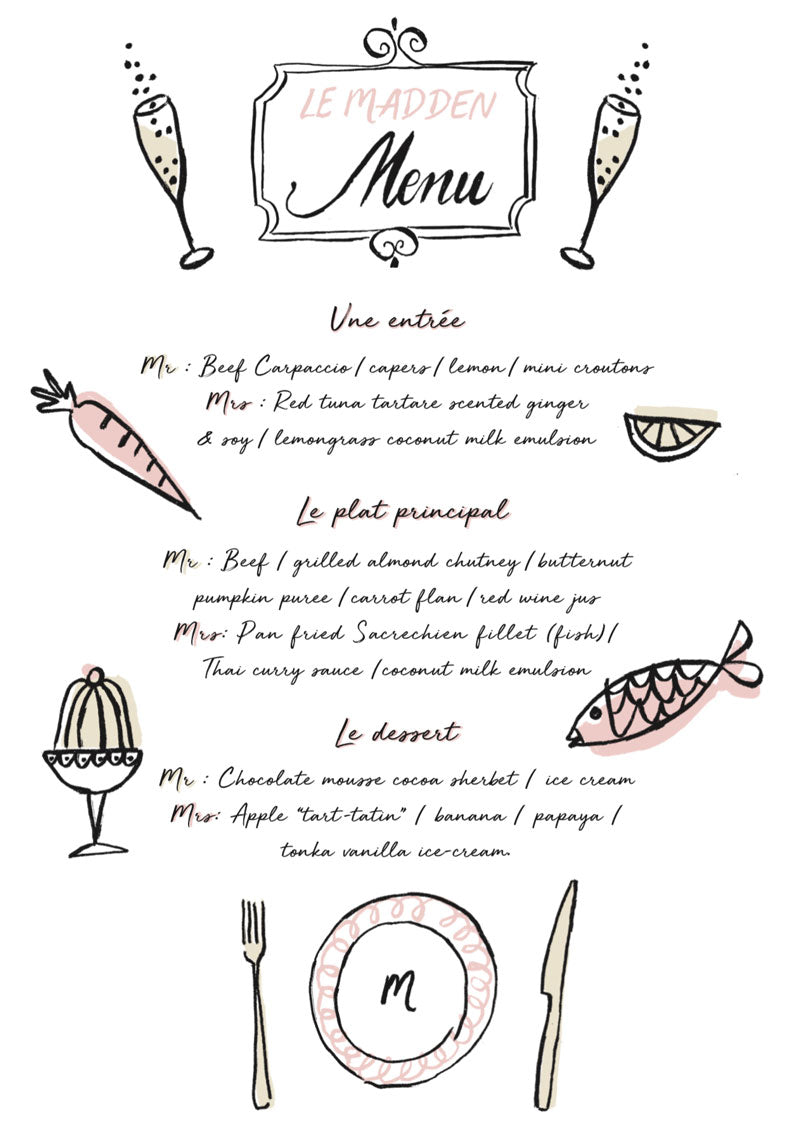 LE MADDEN
Menu
Une entrée
Mr : Beef Carpaccio / capers / lemon / mini croutons
Mrs : Red tuna tartare scented ginger
& soy / lemongrass coconut milk emulsion
Le plat principal
Mr : Beef / grilled almond chutney / butternut
pumpkin puree / carrot flan / red wine jus
Mrs: Pan fried Sacrechien fillet (fish) /
Thai curry sauce / coconut milk emulsion
Le dessert
Mr : Chocolate mousse cocoa sherbet / ice cream
Mrs: Apple "tart-tatin" / banana / papaya /
tonka vanilla ice-cream.
M